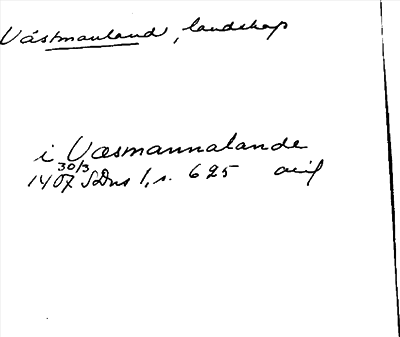 Västmanland, landskap
i Væsmannalande
30/3
1407 SDns 1, s. 625 avil